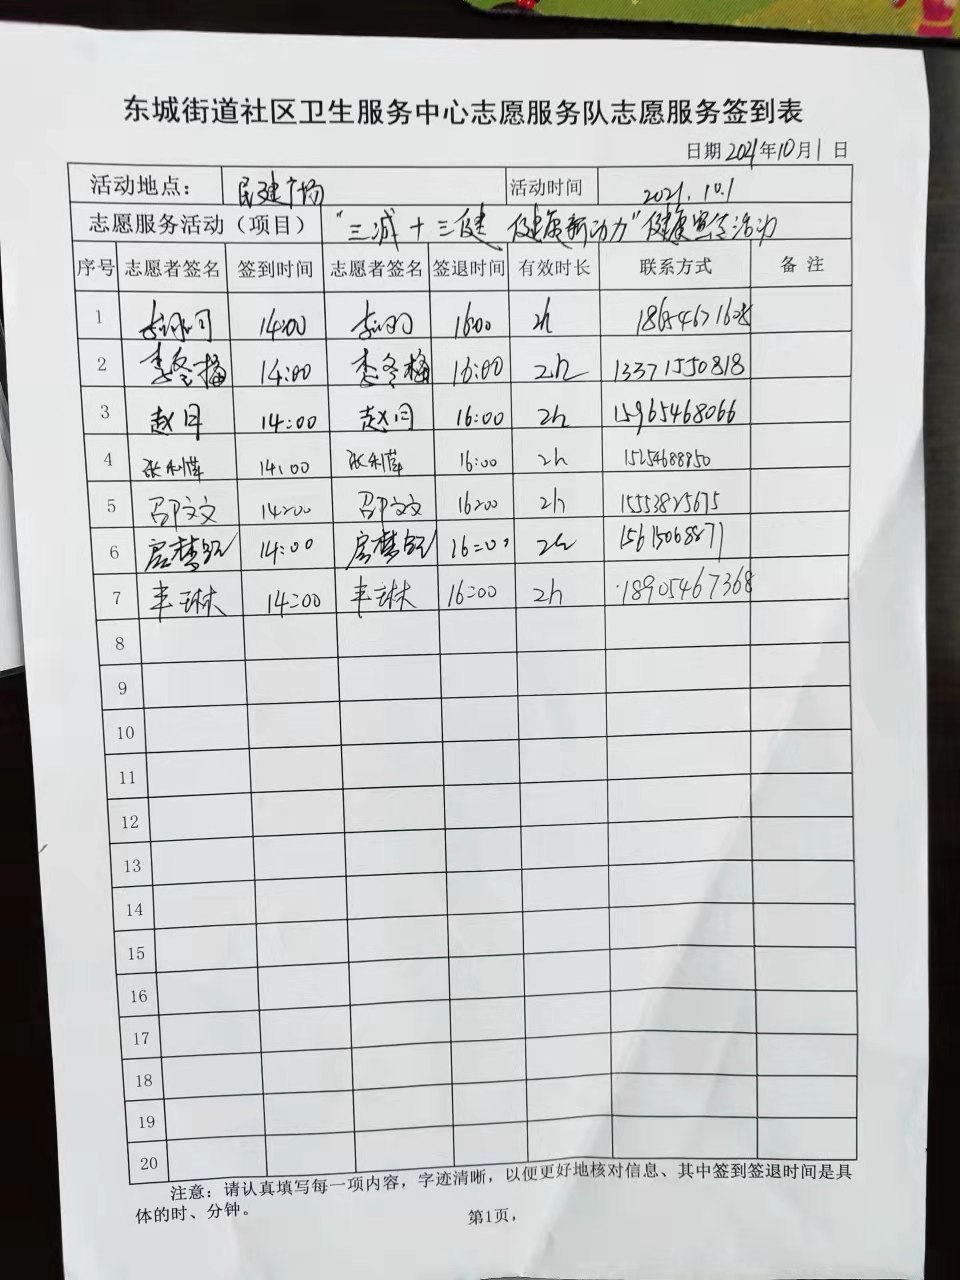 东城街道社区卫生服务中心志愿服务队志愿服务签到表
日期 2021年10月1日
活动地点： 民建广场 活动时间 2021.10.1
志愿服务活动（项目） “三减十三健 健康新动力”健康宣传活动
序号 志愿者签名 签到时间 志愿者签名 签退时间 有效时长 联系方式 备注
1 14:00 16:00 2h
2 李冬梅 14:00 李冬梅 16:00 2h 13371550818
3 赵日 14:00 赵日 16:00 2h 15965468066
4 张利萍 14:00 张利萍 16:00 2h 15254688850
5 邵文文 14:00 邵文文 16:00 2h 15553825675
6 14:00 16:00 2h 15615068871
7 丰琳 14:00 丰琳 16:00 2h 18905467368
8
9
10
11
12
13
14
15
16
17
18
19
20
注意：请认真填写每一项内容，字迹清晰，以便更好地核对信息、其中签到签退时间是具
体的时、分钟。
第1页，